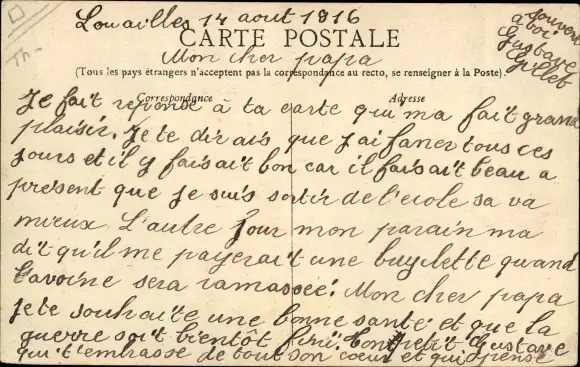 Louailles 14 aout 1916
CARTE POSTALE
Mon cher papa
(Tous les pays étrangers n'acceptent pas la correspondance au recto, se renseigner à la Poste).
Correspondance
Adresse
Je fait reponse à ta carte qui ma fait grand
plaisir. Je te dirais que j'ai faner tous ces
jours et il y faisait bon car il faisait beau a
present que je suis sortir de l'ecole sa va
mieux L'autre jour mon parain ma
dit qu'il me payerait une bugclette quand
l'avoine sera ramassée. Mon cher papa
je te souhaite une bonne santé et que la
guerre soit bientôt fini. Ton petit Gustave
qui t'embrasse de tout son coeur et qui pense
souvent
à toi
Gustave
Gillet
Th-